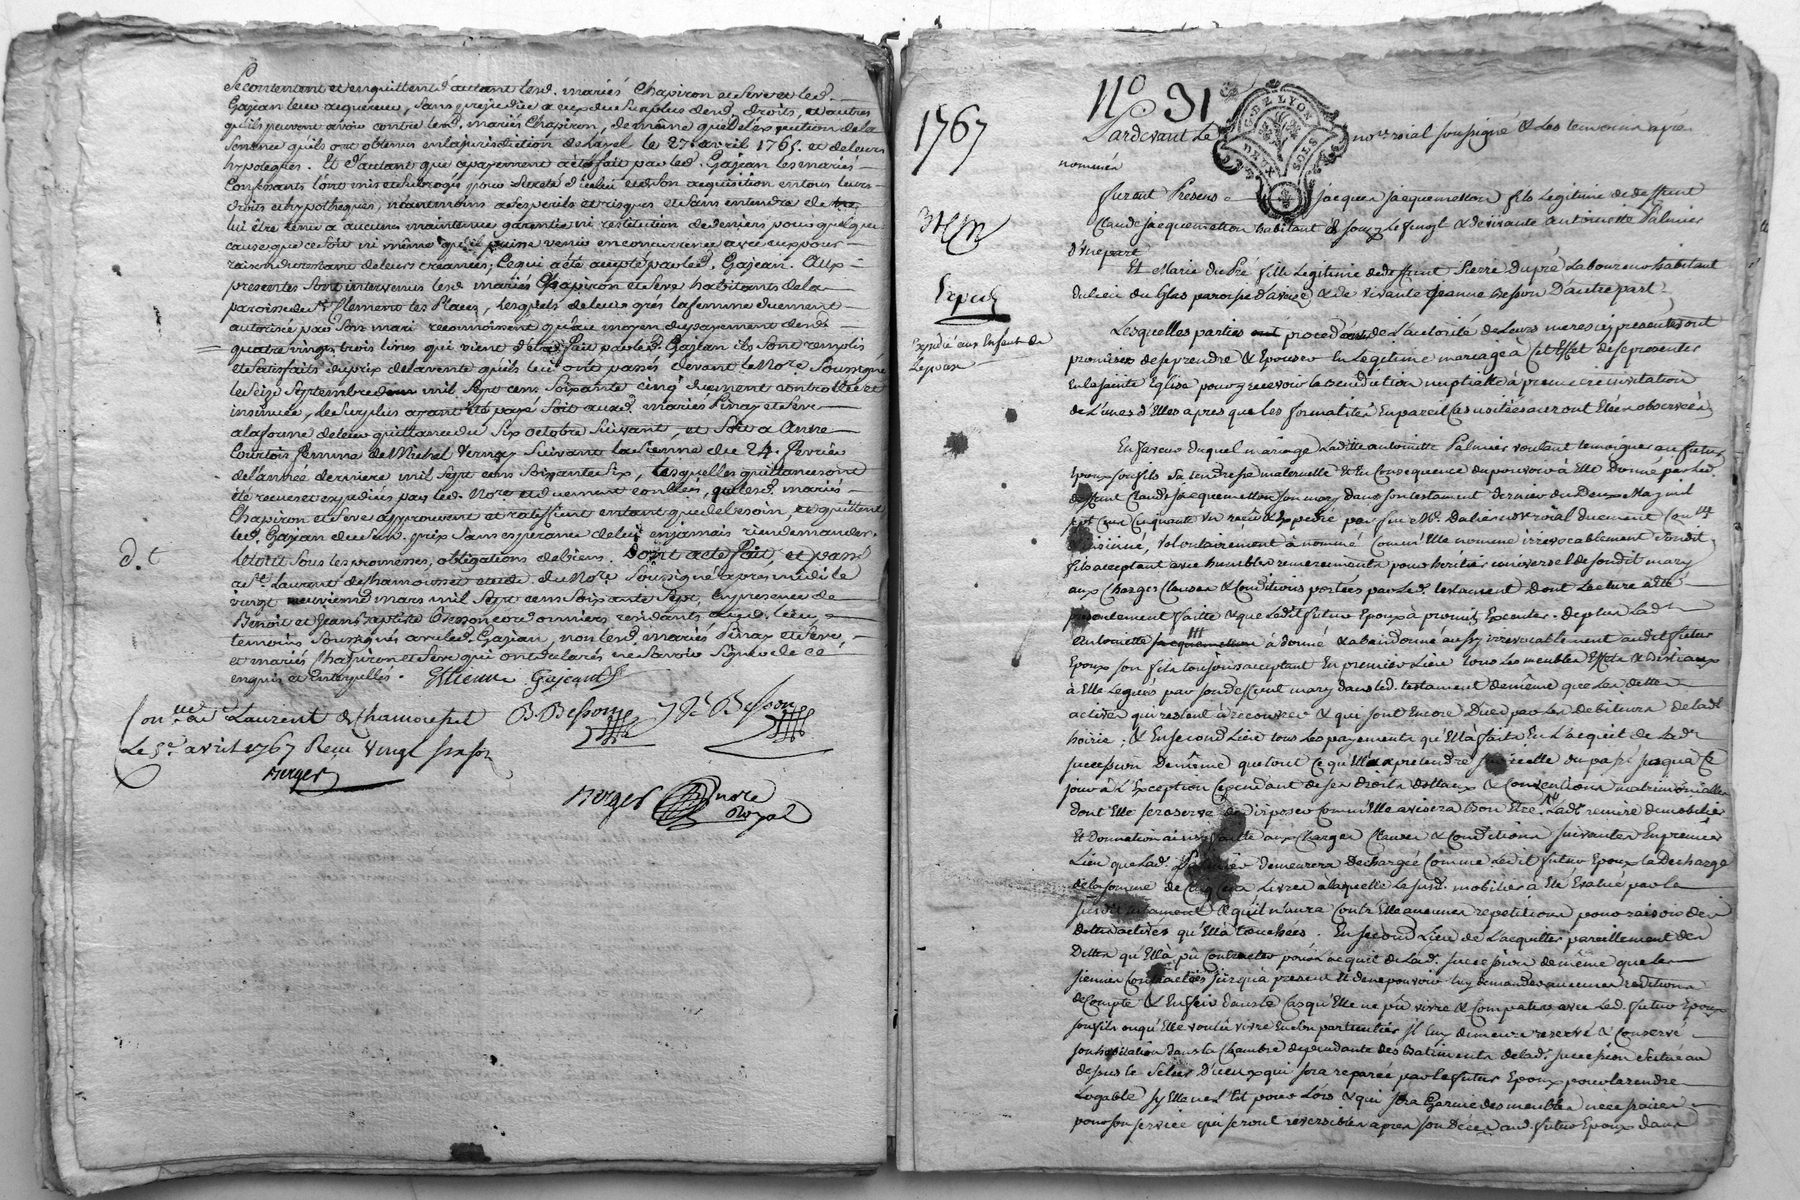 Se contentant et en quittent d'autant lesd. mariés Chapiron et Seve et led.
Gajean leur acquereur, sans prejudice a eux du surplus desd. droits, et autres
qu'ils peuvent avoir contre lesd. mariés Chapiron, de même que de l'éxécution de la
Sentence qu'ils ont obtenue en la jurisdiction de Lavel le 27e avril 1765. et de leurs
hypoteques. Et d'autant que ce payement a été fait par led. Gajean les mariés
Confessants l'ont mis et subrogé pour sureté d'icelui et de son acquisition en tous leurs
droits et hypotheques, néantmoins a ses perils et risques et sans entendre de
lui être tenus a aucune maintenue garentie ni restitution de deniers pour quelque
cause que ce soit ni même qu'il puisse venir en concurrence avec eux pour
raison du restant de leurs creances; Ce qui a été accepté par led. Gajean. Aux
presentes sont intervenus lesd mariés Chapiron et Seve habitants de la
paroisse de St Clement les Places, lesquels de leur grés la femme duement
autorisée par son mari reconnoissent qu'au moyen du payement desd.
quatre vingt trois livres qui vient d'être fait par led. Gajean ils sont remplis
et satisfaits du prix de la vente qu'ils lui ont passés devant le Nore Soussigné
le seize Septembre mil sept cens soixante cinq duement controllée et
insinuée, le surplus ayant été payé soit auxd. mariés Pinay et Seve
a la forme de leur quittance du six octobre suivant, et soit a Anne
Courtois femme de Michel Vernay suivant la sienne du 24. Fevrier
de l'année derniere mil sept cens soixante six, lesquelles quittances ont
été recues et expediées par led. Nore et duement conllées, que lesd. mariés
Chapiron et Seve approuvent et ratiffient en tant que de besoin, et quittent
led. Gajean dud. prix sans esperance de lui en jamais rien demander.
Le tout sous les promesses, obligations de biens. Dont acte fait et passé
a St. Laurent de Chamousset etude du Nore Soussigné apres midi le
vingt neuvieme mars mil sept cens soixante sept, En presence de
Benoit et Jean Baptiste Besson cordonniers residants aud. lieu,
temoins Soussignés avec led. Gajean, non lesd. mariés Pinay et Seve,
et mariés Chapiron et Seve qui ont declarés ne savoir signer de ce
enquis et interpellés. Etienne Gajean
B. Besson J. B. Besson
Conllé a St Laurent de Chamousset
Le 5e. avril 1767 Recu Vingt six sols
Berger
Berger nore
Royal
1767
No 31
G. DE LYON
DEUX SOLS
Expedi
Expedié aux Enfant de
L'epoux
Pardevant Le nore roial soussigné & Les temoins apres
nommés
furent Presens jacques jacquemetton fils Legitime de deffunt
Claude jacquemetton habitant de & de vivante antoinette Palmier
d'Une part
Et Marie du Pré fille Legitime de deffunt Pierre dupré Laboureur habitant
du lieu du Glas paroisse & de vivante Jeanne Besson D'autre part
Lesquelles parties procedant de L'autorité de Leurs meres icy presentes ont
promises de se prendre & Epouser En Legitime mariage à Cet Effet de se presenter
En la sainte Eglise pour y recevoir la benediction nuptialle à premiere invitation
de L'une d'Elles apres que les formalités En pareil Cas usitées auront Eté observées
En faveur duquel mariage Laditte antoinette Palmier voulant temoigner au futur
Epoux son fils Sa tendresse maternelle Et En Consequence du pouvoir à Elle Donné par led.
deffunt Claude jacquemetton son mary dans son testament dernier du Deux May mil
sept Cens Cinquante un recû & Expedié par feu Me. Dalier nore roial duement
insinué, volontairement à nommé Comm' Elle nomme irrevocablement sondit
fils acceptant avec humbles remerciments pour héritier universel de sondit mary
aux Charges Clauses & Conditions portées par led. testament dont Lecture à Eté
presentement faitte & que Ledit futur Epoux à promis Executer. De plus Lade
Antoinette à donné & abandonne aussy irrevocablement audit futur
Epoux son fils toujours acceptant En premier Lieu tous Les meubles Effets & Bestiaux
à Elle Legués par sondeffunt mary dans led. testament de même que Les dettes
actives qui restent à recouvrer & qui sont Encore Dues par Les debiteurs de lade
hoirie; & En second Lieu tous Les payements qu'Ell'à faits En L'acquit de Lade
succession De même que tout Ce qu'Elle à pretendre sur icelle du passé jusqu'à Ce
jour à L'Exception Cependant de ses droits dottaux & Conventions matrimonialles
dont Elle se reserve de disposer Comm' Elle avisera Bon Etre. Lade remise de mobilier
Et Donnation ainsy faitte aux Charges Clauses & Conditions suivantes En premier
Lieu que Lad. Palmier demeurera dechargée Comme Ledit futur Epoux la Decharge
de la somme de Cinq Cens Livres à laquelle Le susd. mobilier à Eté Evalué par le
susdit testament & qu'il n'aura Contr' Elle aucunes repetitions pour raison des
dettes actives qu'Ell'à touchées. En second Lieu de L'acquitter pareillement des
Dettes qu'Ell'à pû Contracter pour L'acquit de Lad. succession de même que les
siennes Contractées jusqu'à present Et de ne pouvoir luy demander aucunes redditions
de Compte & Enfin dans le Cas qu'Elle ne pû vivre & Compatir avec Led. futur Epoux
son fils ou qu'Elle voulû vivre En son particulier il luy demeure reservé & Conservé
son habitation dans la Chambre dependante des Batiments de lad. succession située au
dessus le Celier D'iceux qui sera reparée par le futur Epoux pour la rendre
Logable sy Elle ne L'Est pour Lors & qui sera garnie des meubles necessaires
pour son service qui seront reversibles apres son Décès aud. futur Epoux dans